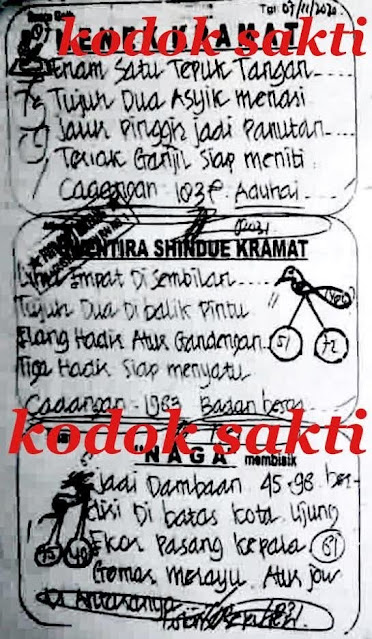 Tgl 07/11/2020
kodok sakti
KRAMAT
Enam Satu Tepuk Tangan
Tujuh Dua Asyik menari
Jauh Pinggir jadi Panutan
Teriak Ganjil Siap meniti
Cadangan 1037 Aduhai
MENTIRA SHINDUE KRAMAT
Lima Empat Di Sembilan
Tujuh Dua Di balik Pintu
Elang Hadir Atur Gandengan
51 72
Tiga Hadir Siap menyatu
Cadangan - 1983
kodok sakti
"NAGA" membisik
Jadi Dambaan 45-98 ber-
disi Di batas Kota Ujung
Ekor Pasang Kepala 61
Gemas Merayu Atur
Di Antaranya